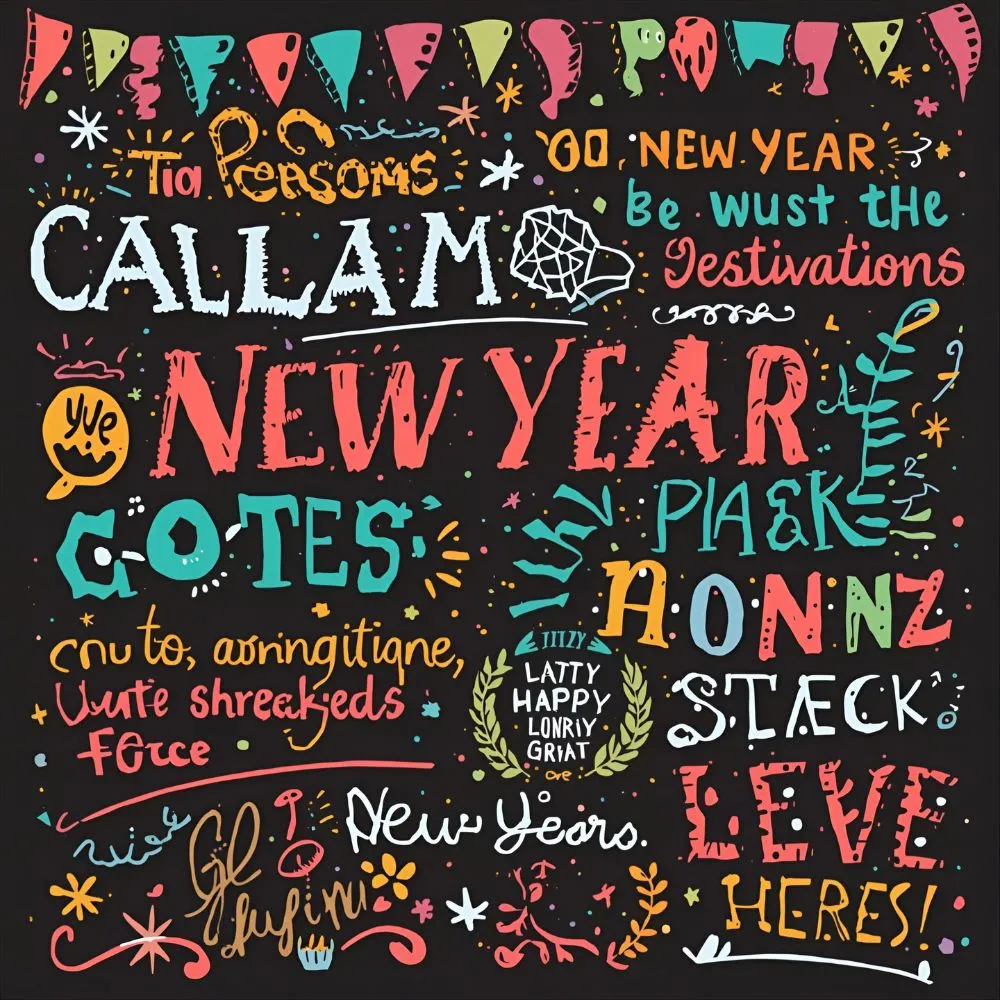 Tia Pcersoms
'00, NEW YEAR
Be wust tHe
Destivations
CALLAM
NEW YEAR
yve
COTES
PIA&K
AONNZ
cnu to, aorngitiqne,
Uute shreakjeds
FOrce
TITZY
LATTY
HAPPY
LONRIY
GRIAT
STÆCK
New Years.
LEVE
HERES!